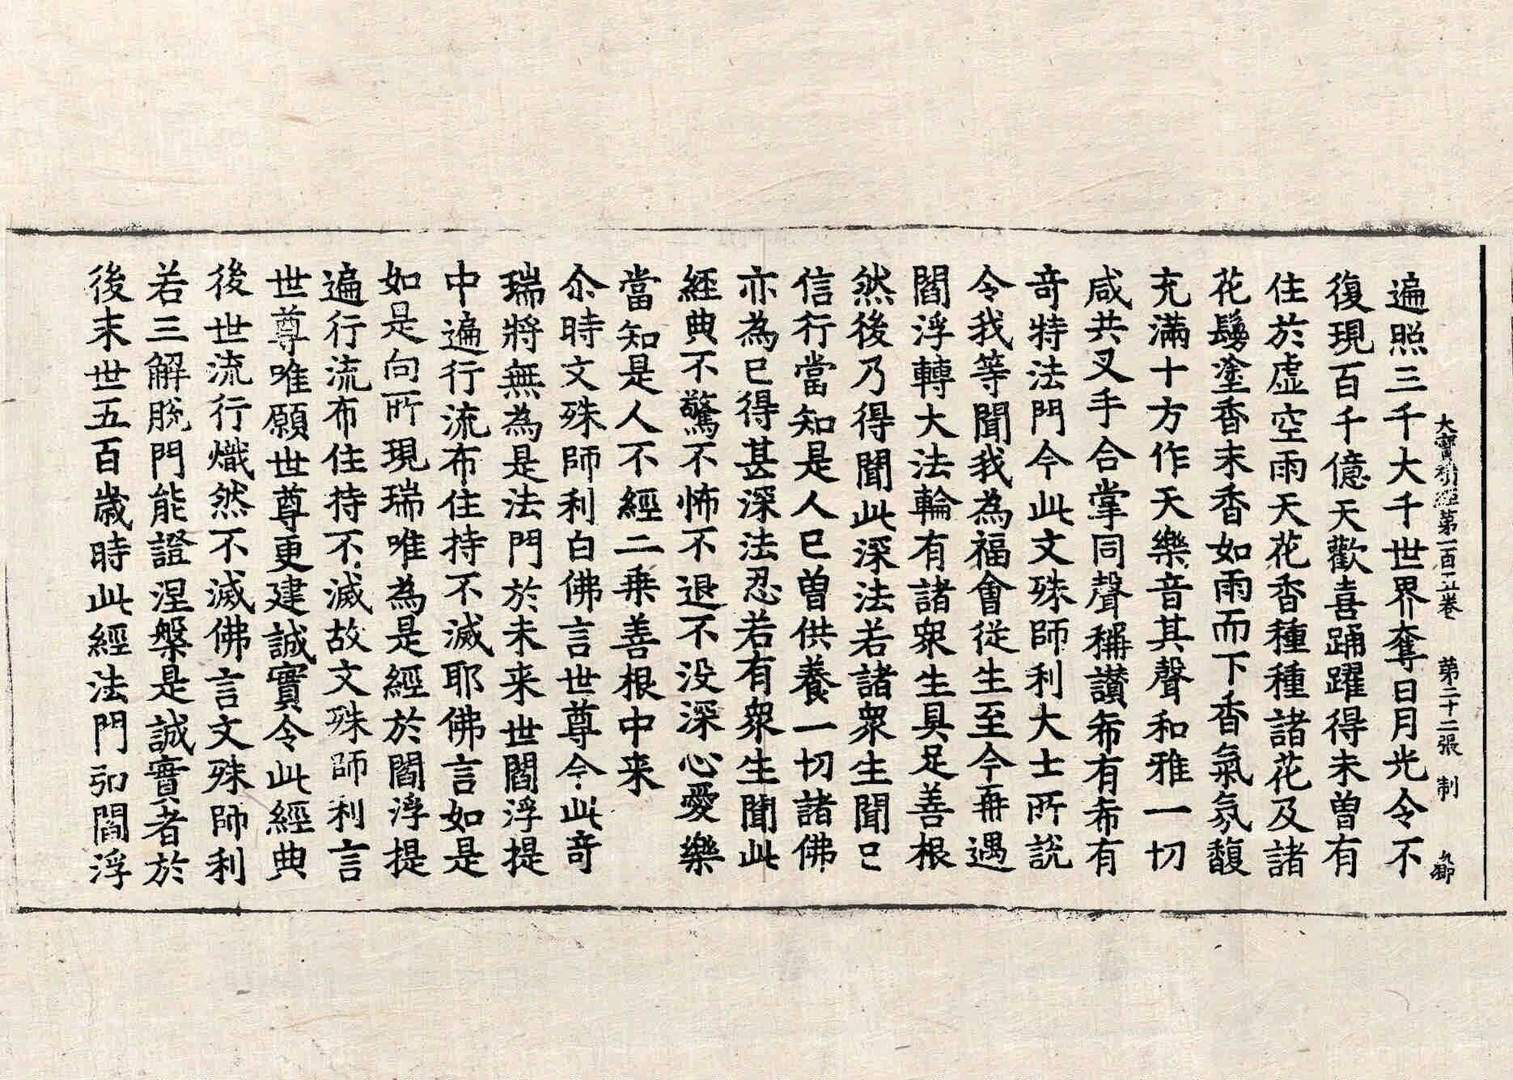 大寶積經第一百五卷 第二十二張 制
遍照三千大千世界奪日月光令不
復現百千億天歡喜踊躍得未曾有
住於虛空雨天花香種種諸花及諸
花鬘塗香末香如雨而下香氣氛馥
充滿十方作天樂音其聲和雅一切
咸共叉手合掌同聲稱讃希有希有
竒特法門今此文殊師利大士所說
令我等聞我為福會從生至今再遇
閻浮轉大法輪有諸衆生具足善根
然後乃得聞此深法若諸衆生聞已
信行當知是人已曽供養一切諸佛
亦為已得甚深法忍若有衆生聞此
經典不驚不怖不退不没深心愛樂
當知是人不經二乗善根中来
尒時文殊師利白佛言世尊今此竒
瑞將無為是法門於未来世閻浮提
中遍行流布住持不滅耶佛言如是
如是向所現瑞唯為是經於閻浮提
遍行流布住持不滅故文殊師利言
世尊唯願世尊更建誠實令此經典
後世流行熾然不滅佛言文殊師利
若三解脫門能證涅槃是誠實者於
後末世五百歲時此經法門於閻浮